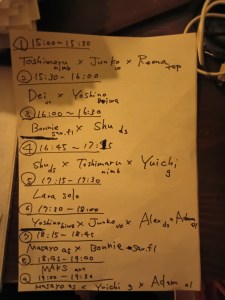 ① 15:00~15:30
Toshimaru × Junko × Rema
nimb vo tap
② 15:30~16:00
Dei × Yoshino
biwa
③ 16:00~16:30
Bonnie × Shu
san.fl ds
④ 16:45~17:15
Shu × Toshimaru × Yuichi
ds nimb g
⑤ 17:15~17:30
Lara solo
⑥ 17:30~18:00
Yoshino × Junko × Alex × Adam
biwa vo ds ol
⑦ 18:15~18:45
Masayo as × Bonnie san.fl
⑧ 18:45~19:00
MAKS
⑨ 19:00~19:30
Masayo as × Yuichi g × Adam ol